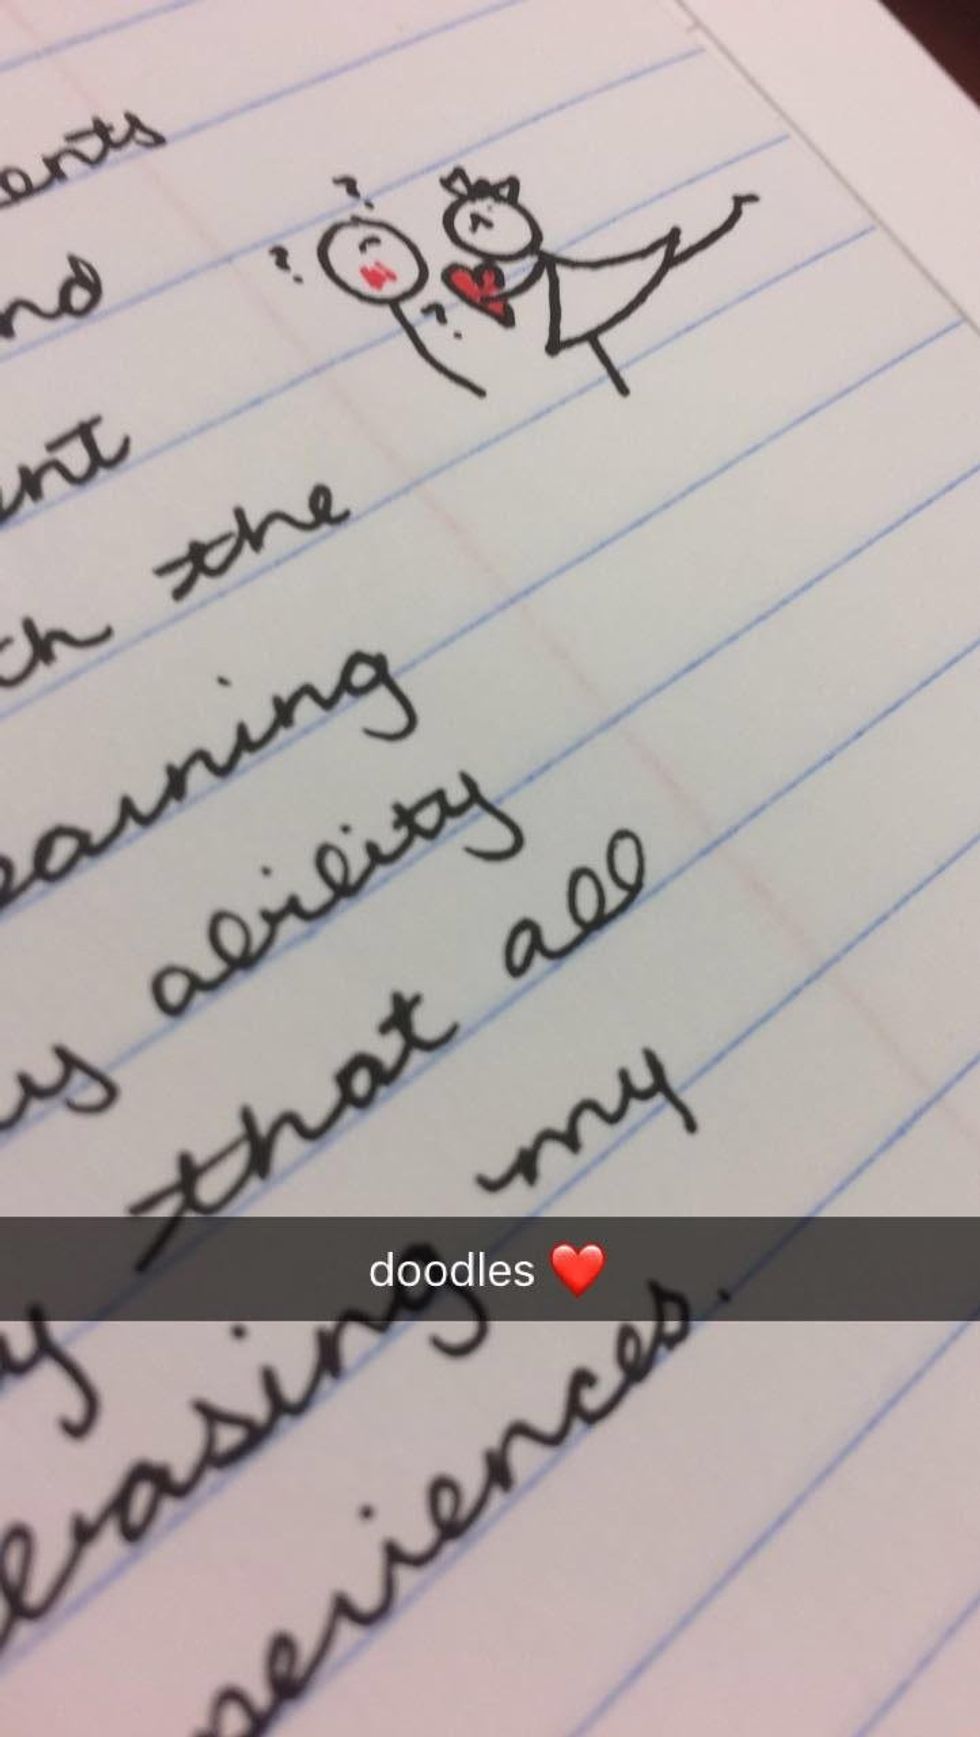 ents
nd
? ? ?
nt
th the
earning
ability
that all
my
doodles ❤️
easing
periences.